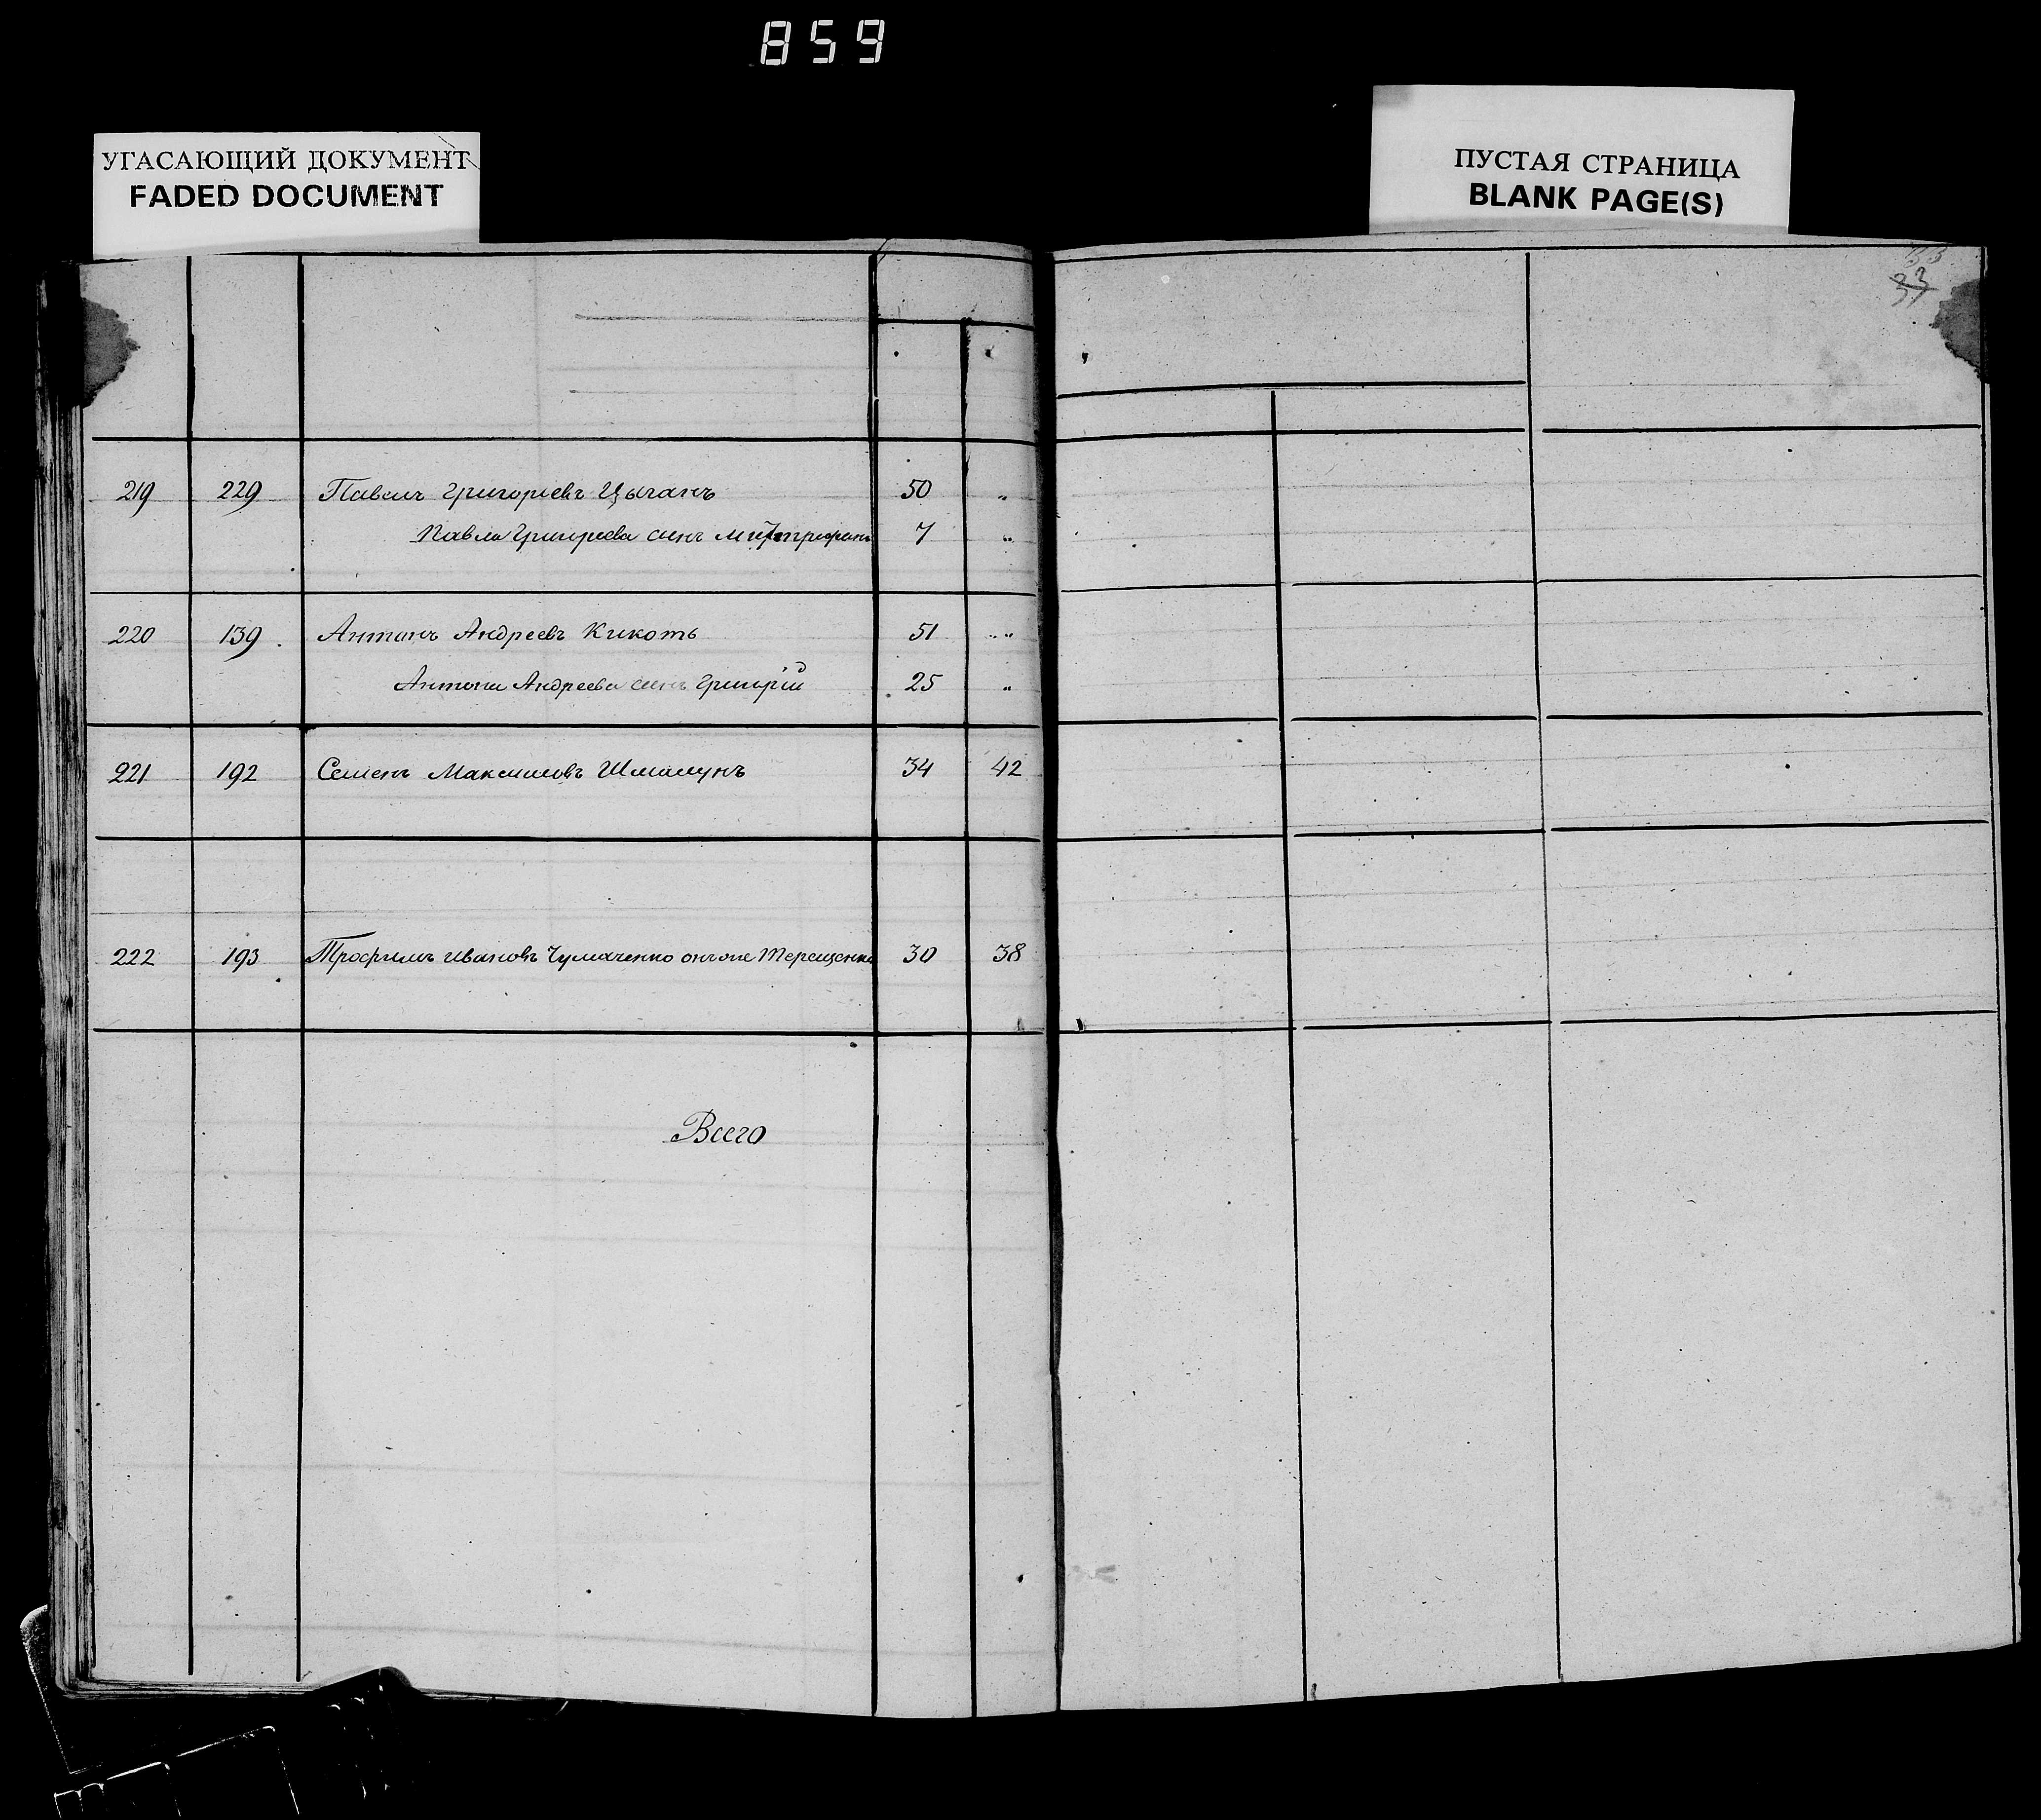 859
УГАСАЮЩИЙ ДОКУМЕНТ
FADED DOCUMENT
ПУСТАЯ СТРАНИЦА
BLANK PAGE(S)
33
219 229 Павелъ Григорьевъ Цыганъ 50 "
Павла Григорьева сынъ Митрофанъ 7 "
220 139 Антонъ Андреевъ Кикоть 51 "
Антона Андреева сынъ Григорій 25 "
221 192 Семенъ Максимовъ 34 42
222 193 Трофимъ Ивановъ Чумаченко онъ же Терещенко 30 38
Всего